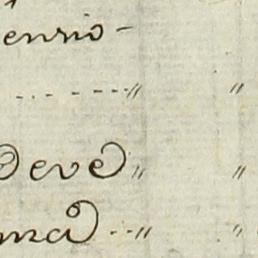 enrio-
- - - - - - " "
Deve " "
ma - - " "